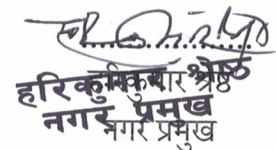 हरि कुमार श्रेष्ठ
नगर प्रमुख
हरिकुमार श्रेष्ठ
नगर प्रमुख